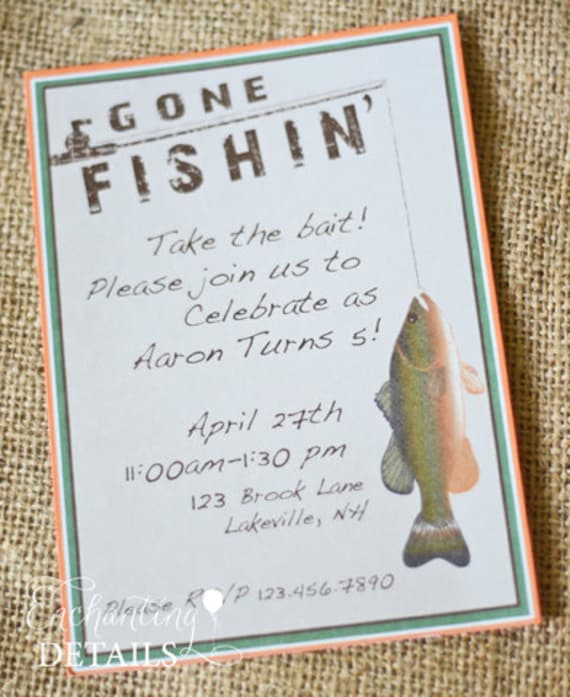 GONE
FISHIN'
Take the bait!
Please join us to
Celebrate as
Aaron Turns 5!
April 27th
11:00am-1:30 pm
123 Brook Lane
Lakeville, NH
Please 123.456.7890
Enchanting
DETAILS